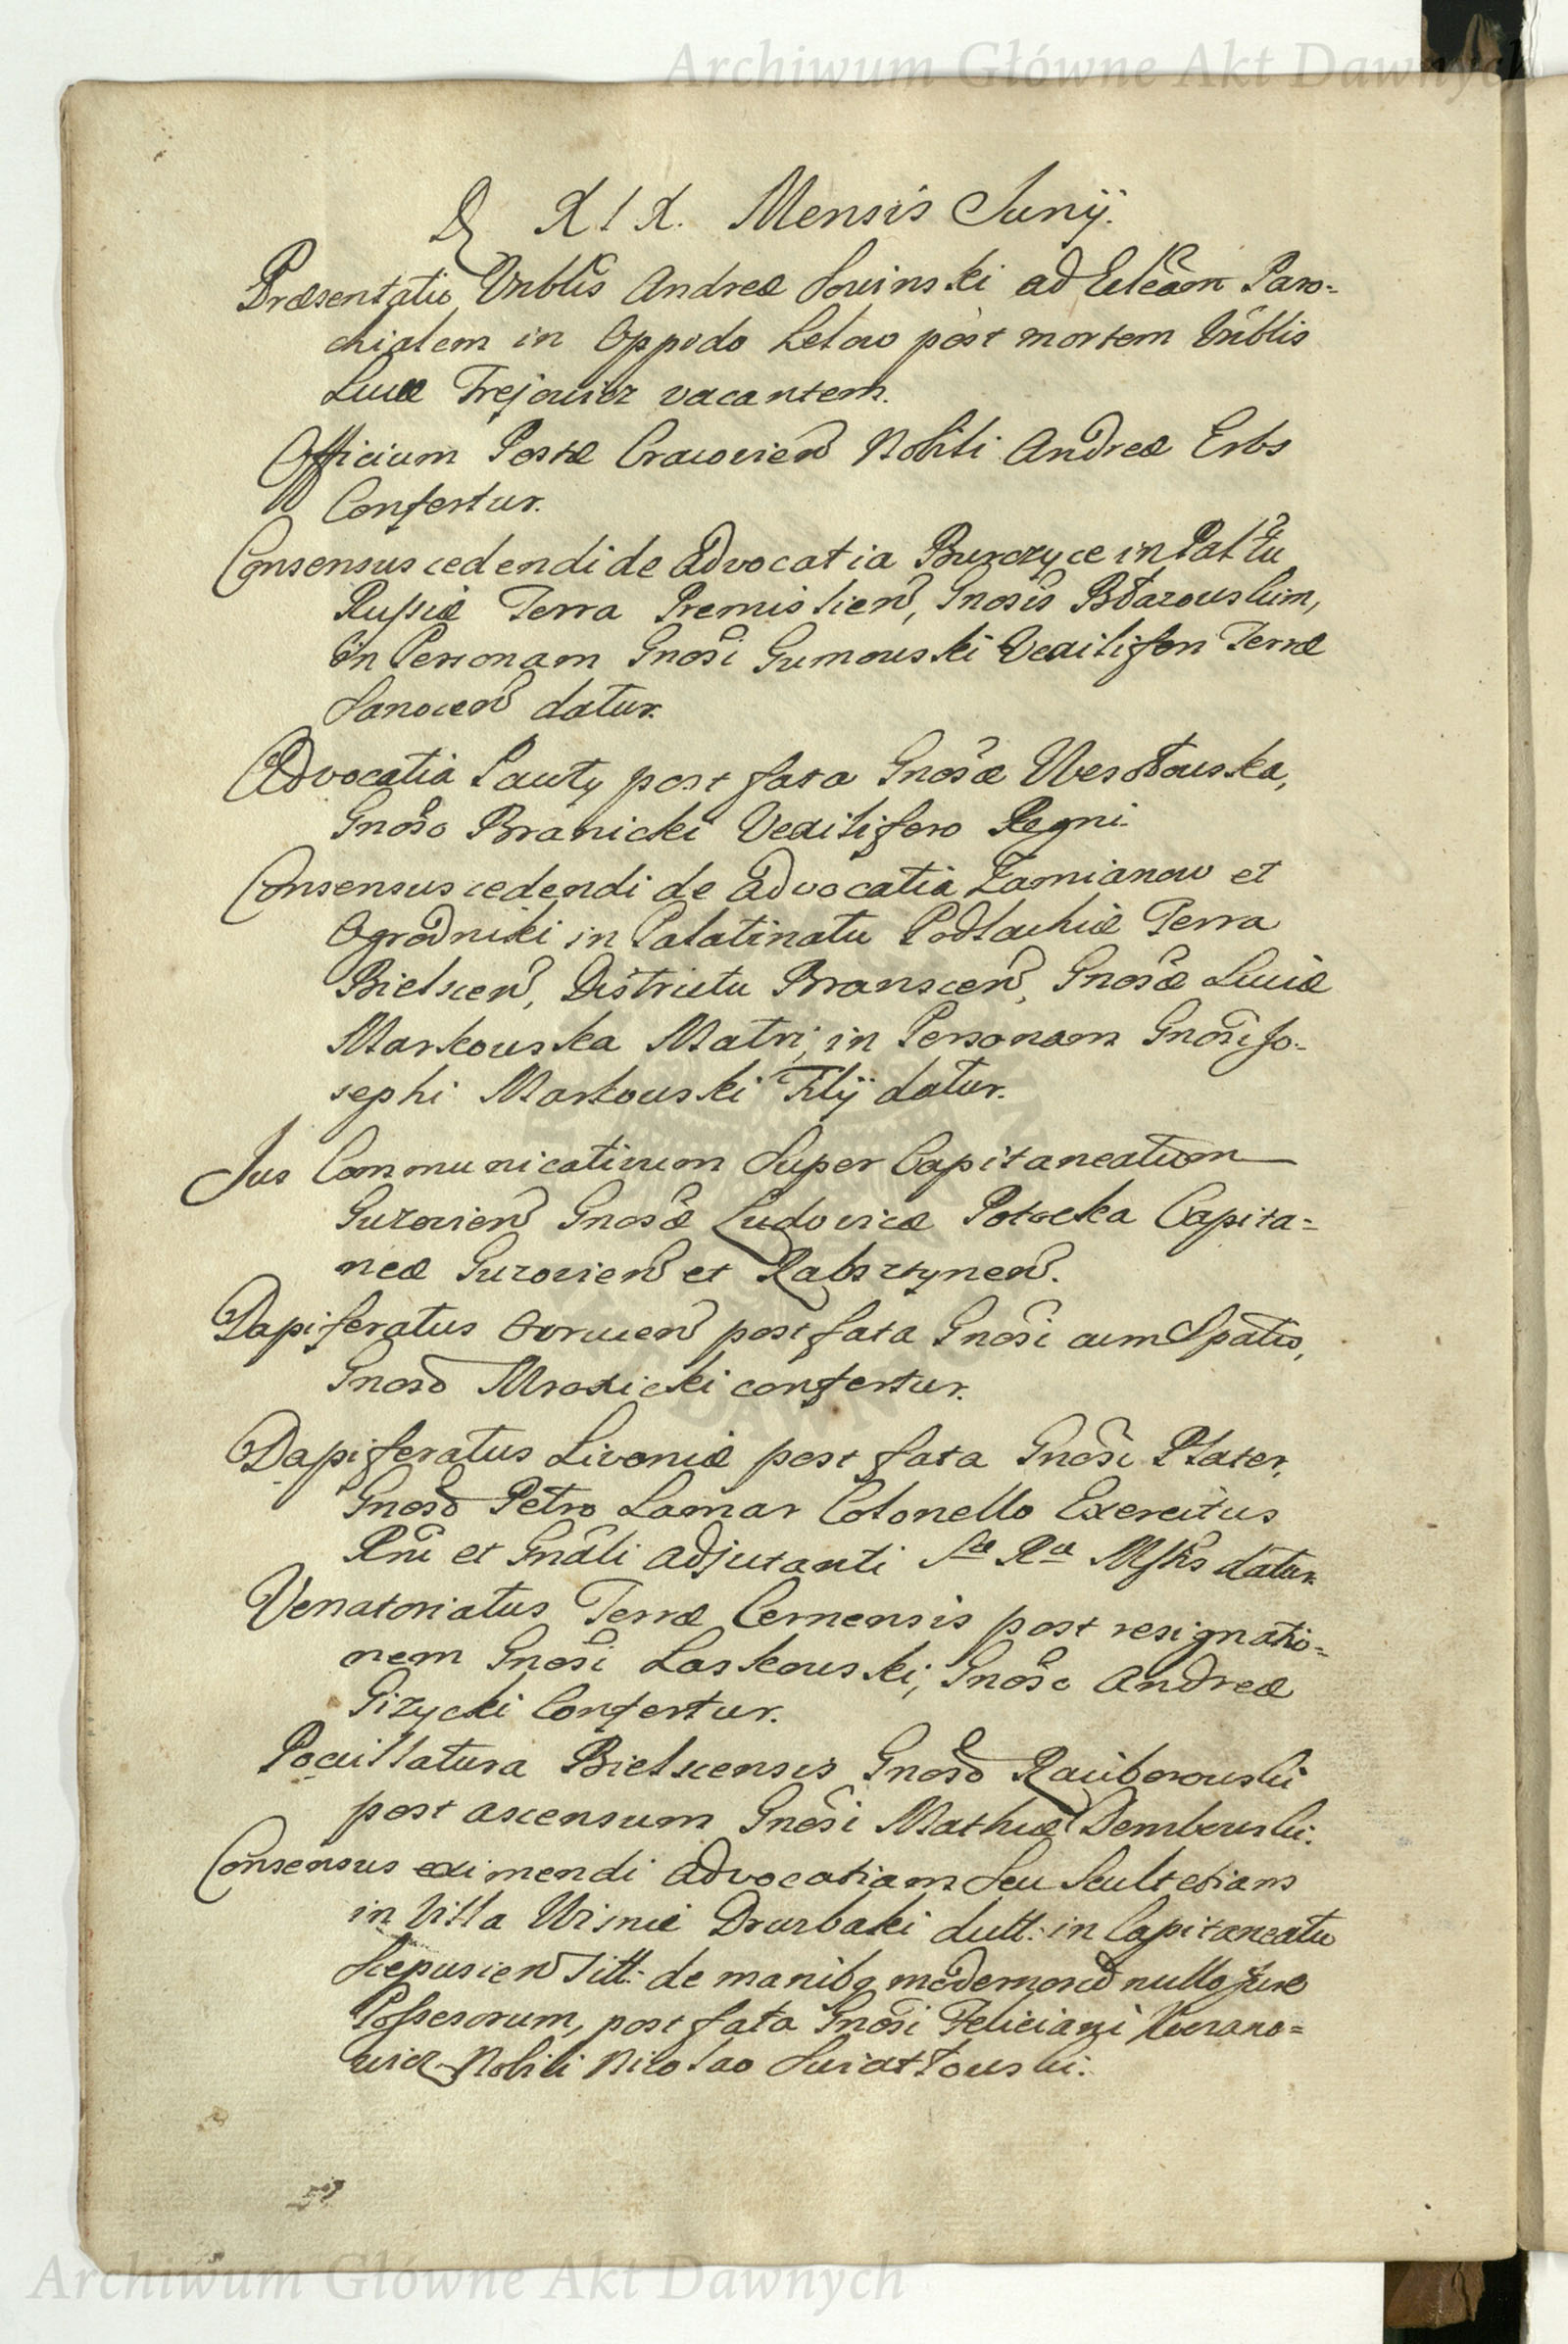 Archiwum Główne Akt Dawnych
D XIX. Mensis Junÿ.
Præsentatio Vnblis Andreæ Sowinski ad Eccleam Paro=
chialem in Oppido Lelow post mortem Vnblis
Lucæ Trejowicz vacantem.
Officium Postæ Cracovien Nobili Andreæ Erbs
Confertur.
Consensus cedendi de Advocatia Burczyce in Paltu
Russiæ Terra Premislien, Gnosis Błazowskim,
in Personam Gnosi Gumowski Vexiliferi Terræ
Sanocen datur.
Advocatia Pauty post fata Gnosæ Wesołowska,
Gnoso Branicki Vexilifero Regni.
Consensus cedendi de Advocatia Zamianow et
Ogrodniki in Palatinatu Podlachiæ Terra
Bielscen, Districtu Branscen, Gnosæ Luciæ
Markowska Matri, in Personam Gnosi Jo-
sephi Markowski Filÿ datur.
Jus Communicativum Super Capitaneatum
Guzovien Gnosæ Ludovicæ Potocka Capita=
neæ Guzovien et Rabsztynen.
Dapiferatus post fata Gnosi
Gnoso Mrozicki confertur.
Dapiferatus Livoniæ post fata Gnosi Plater,
Gnoso Petro Lamar Colonello Exercitus
Rni et Gnali Adjutanti Sæ Ræ Mstis datur.
Venatoriatus Terræ Cernensis post resignatio=
nem Gnosi Laskowski, Gnoso Andreæ
Gizycki Confertur.
Pocillatura Bielscensis Gnoso Raciborowski
post ascensum Gnosi Mathiæ Dembowski.
Consensus eximendi Advocatiam Seu Scultetiam
in Villa Wisnie Druzbaki dutt: in Capitaneatu
Scepusien Sitt: de manibq modernorum nullo jure
Possesorum, post fata Gnosi Feliciani
wicz Nobili Nicolao Swiattowski.
Archiwum Główne Akt Dawnych